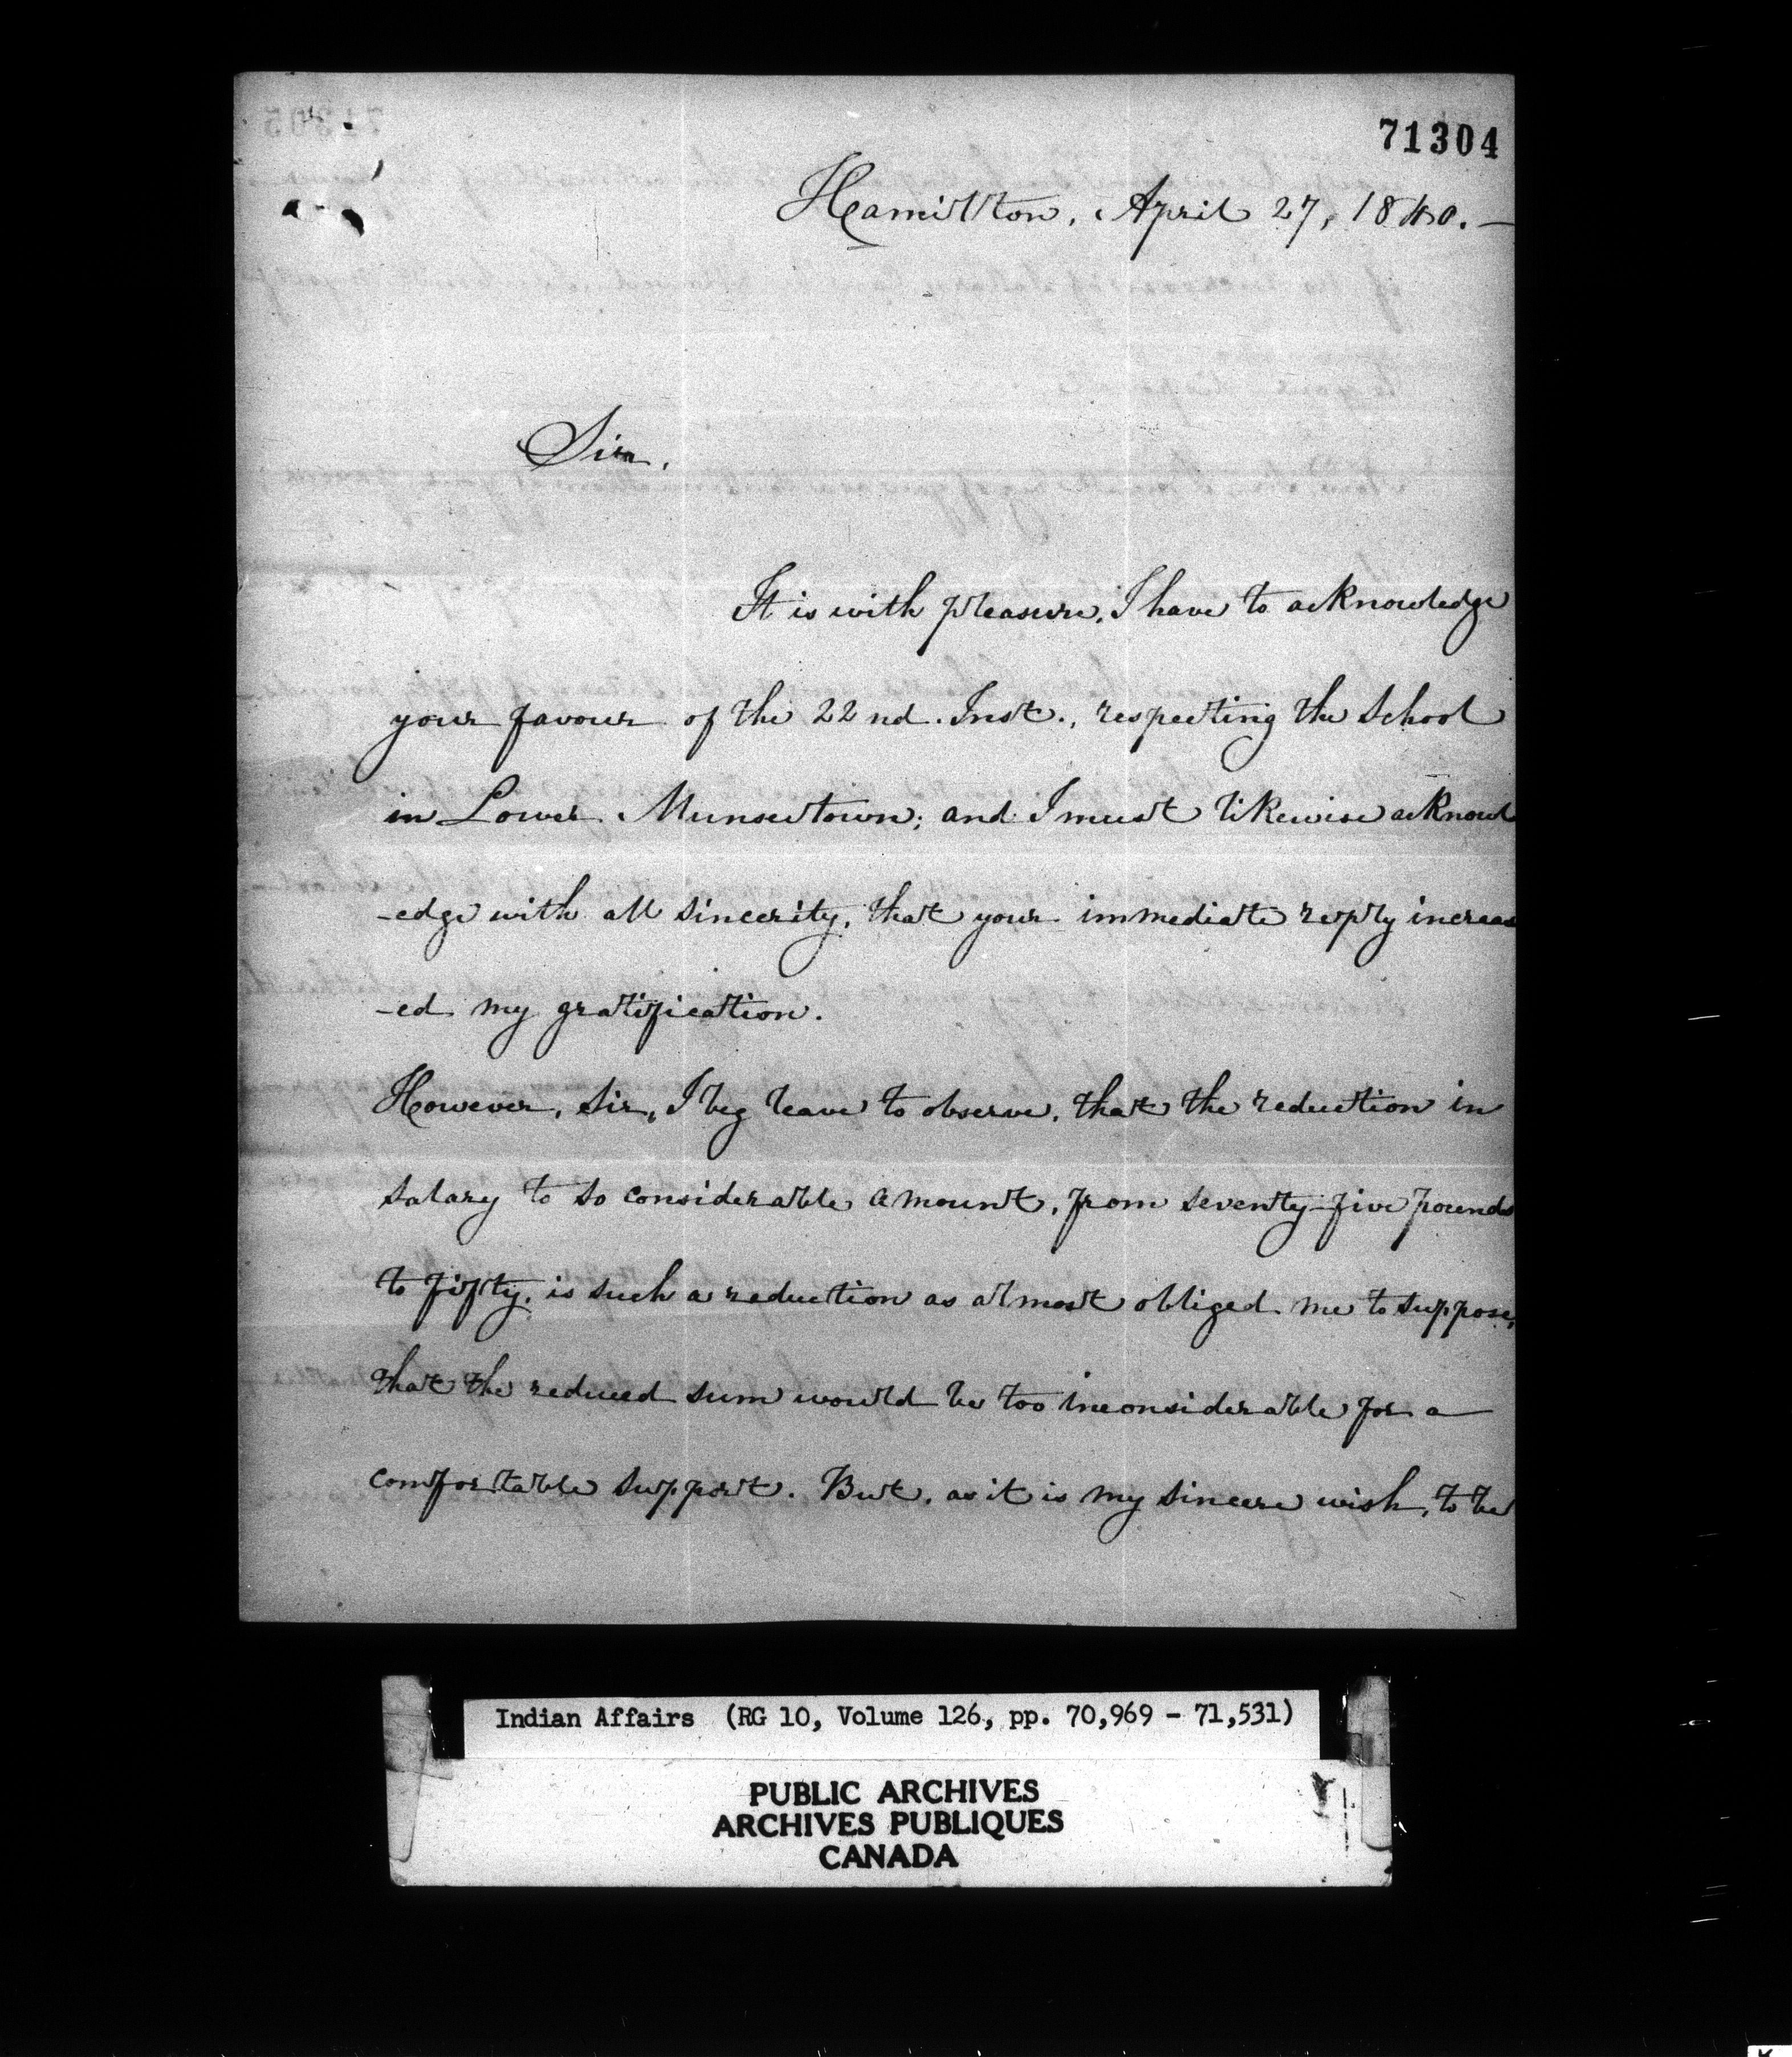 71304
Hamilton, April 27, 1840. —
Sir,
It is with pleasure, I have to acknowledge
your favour of the 22nd. Inst., respecting the School
in Lower Munseetown; and I must likewise acknowl
-edge with all sincerity, that your immediate reply increas
-ed my gratification.
However, Sir, I beg leave to observe, that the reduction in
salary to so considerable amount, from seventy-five pounds
to fifty, is such a reduction as almost obliged me to suppose,
that the reduced sum would be too inconsiderable for a
comfortable support. But, as it is my sincere wish, to be
Indian Affairs (RG 10, Volume 126, pp. 70,969 - 71,531)
PUBLIC ARCHIVES
ARCHIVES PUBLIQUES
CANADA